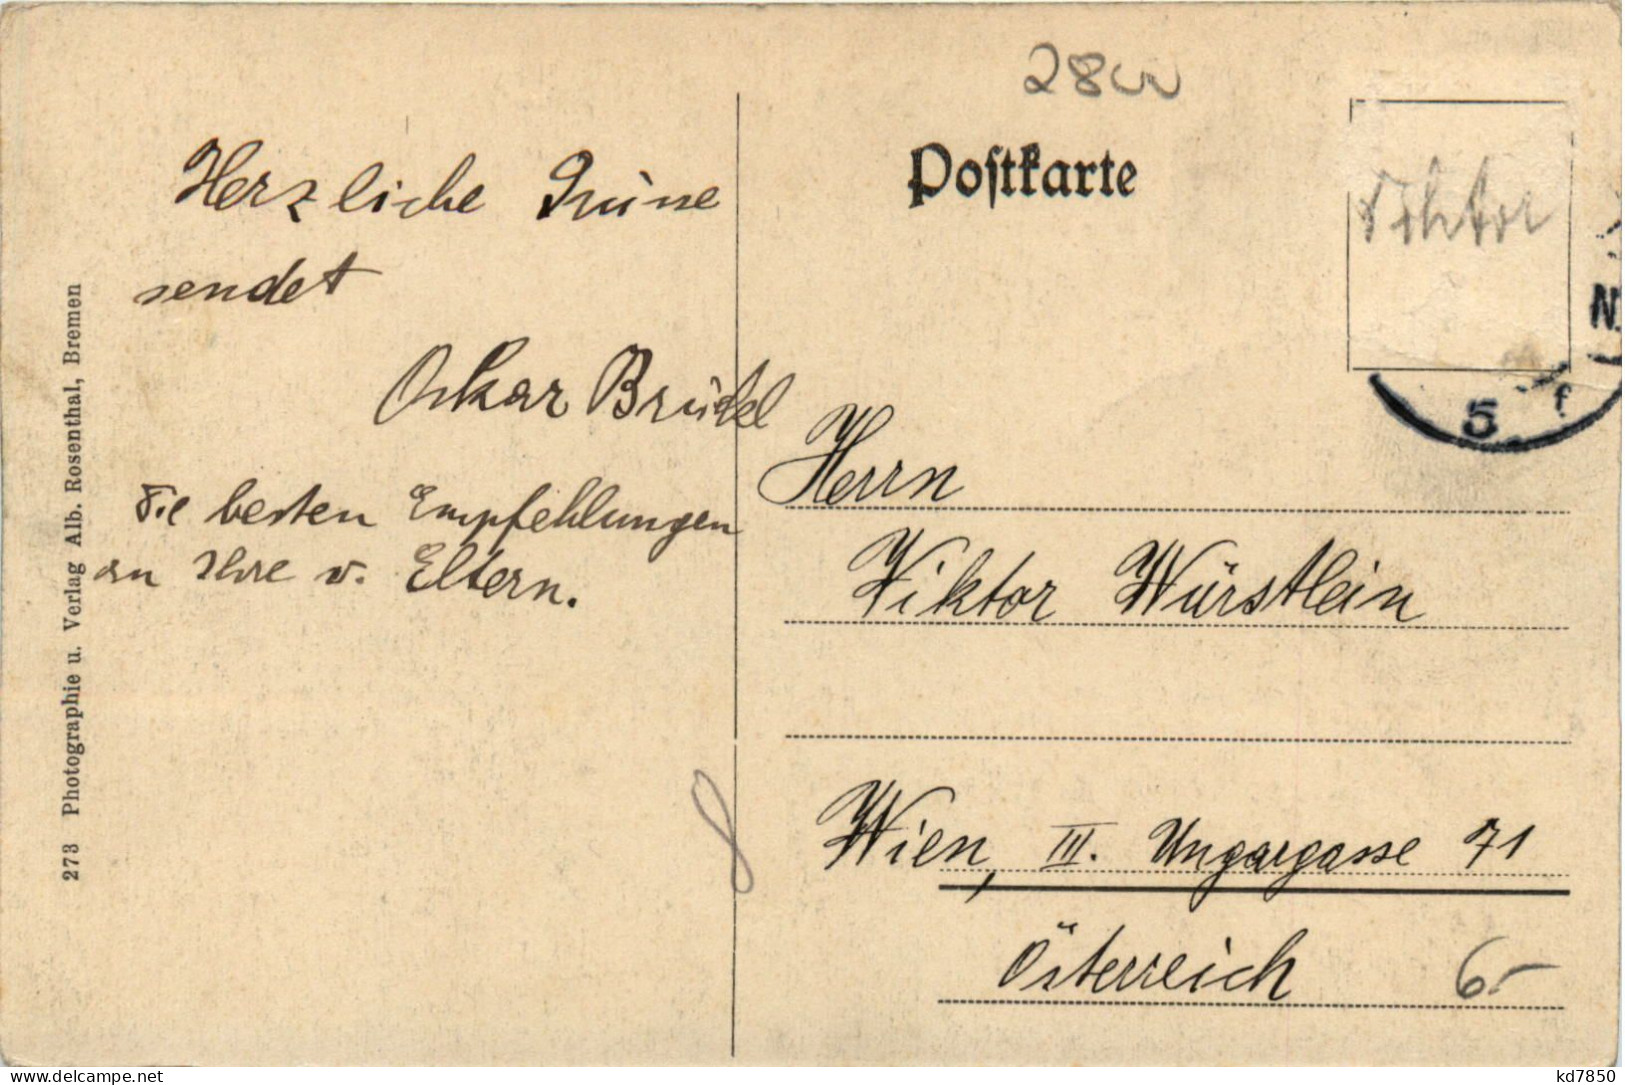 2800
Postkarte
Herzliche Grüsse
sendet
Oskar Brüdel
Die besten Empfehlungen
an Ihre v. Eltern.
Herrn
Viktor Würstlein
Wien, III. Ungargasse 71
Österreich
6-
8
N.
5
f
273 Photographie u. Verlag Alb. Rosenthal, Bremen
www.delcampe.net
kd7850